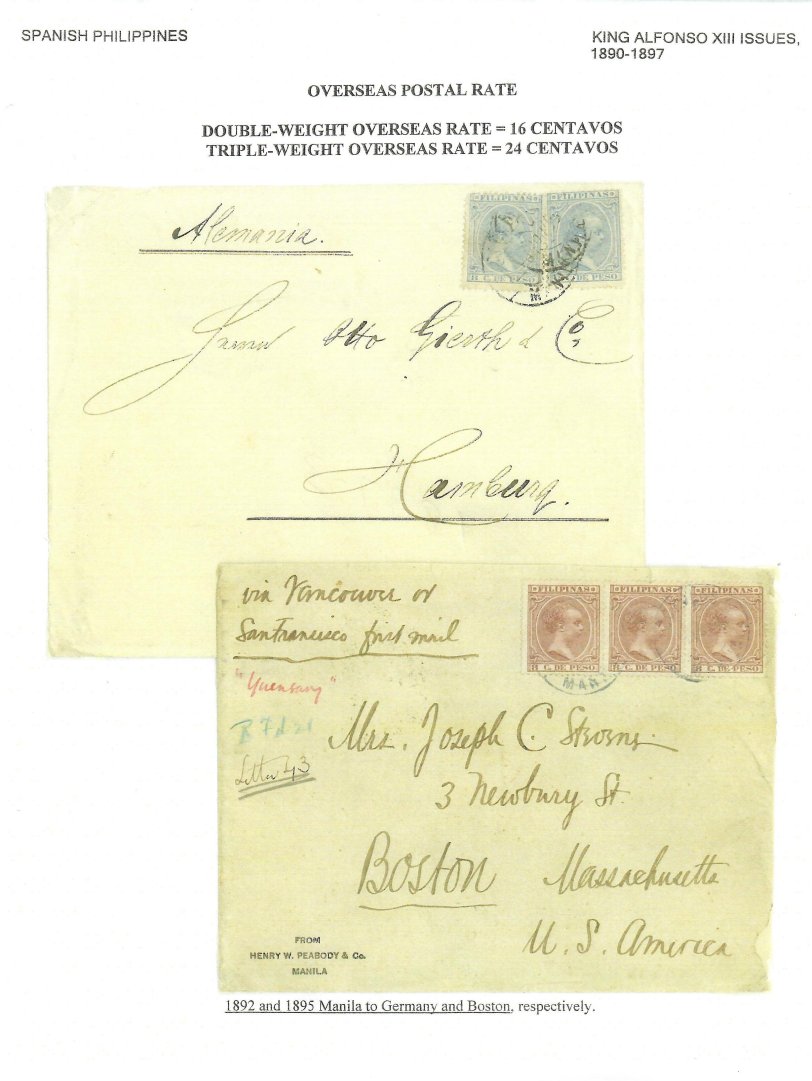 SPANISH PHILIPPINES
KING ALFONSO XIII ISSUES,
1890-1897
OVERSEAS POSTAL RATE
DOUBLE-WEIGHT OVERSEAS RATE = 16 CENTAVOS
TRIPLE-WEIGHT OVERSEAS RATE = 24 CENTAVOS
FILIPINAS FILIPINAS
8 C. DE PESO DE PESO
Alemania.
Herrn Otto Gierth & Co,
Hamburg.
via Vancouver or
San Francisco first mail
FILIPINAS FILIPINAS FILIPINAS
8 C. DE PESO 8 C. DE PESO 8 C. DE PESO
Letter 43
Mrs. Joseph C. Stevens
3 Newbury St.
BOSTON Massachusetts
U. S. America
FROM
HENRY W. PEABODY & Co.
MANILA
1892 and 1895 Manila to Germany and Boston, respectively.